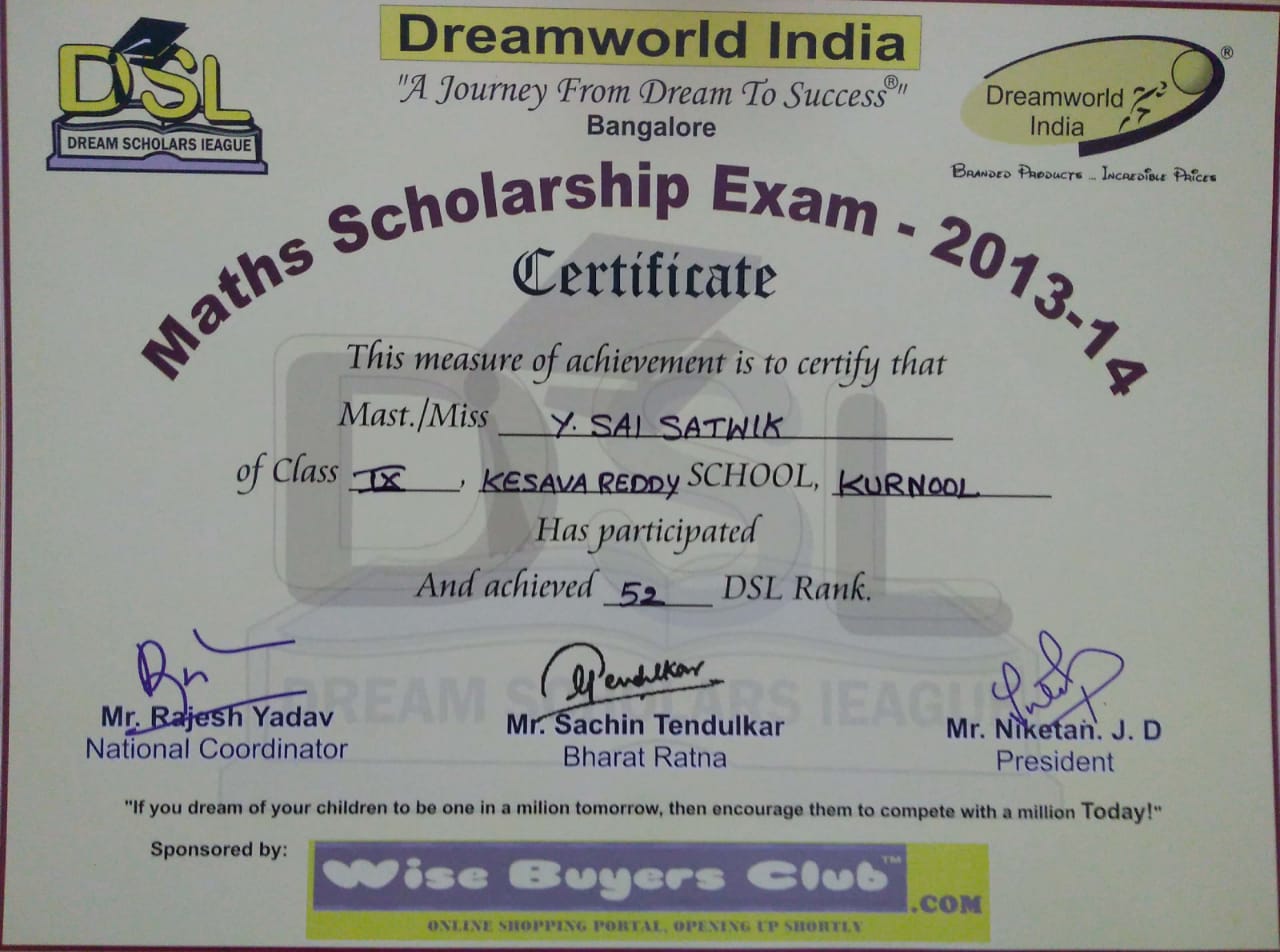 DSL
DREAM SCHOLARS lEAGUE
Dreamworld India
"A Journey From Dream To Success®"
Bangalore
Dreamworld India ®
Branded Products ... Incredible Prices
Maths Scholarship Exam - 2013-14
Certificate
This measure of achievement is to certify that
Mast./Miss Y. SAI SATWIK
of Class IX, KESAVA REDDY SCHOOL, KURNOOL
Has participated
And achieved 52 DSL Rank.
Tendulkar
Mr. Rajesh Yadav
National Coordinator
Mr. Sachin Tendulkar
Bharat Ratna
Mr. Niketan. J. D
President
DSL
DREAM SCHOLARS lEAGUE
"If you dream of your children to be one in a milion tomorrow, then encourage them to compete with a million Today!"
Sponsored by:
Wise Buyers Club™.COM
ONLINE SHOPPING PORTAL, OPENING UP SHORTLY